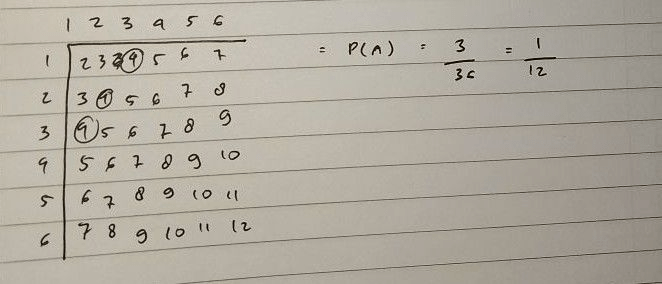 1 2 3 4 5 6
1 2 3 4 5 6 7 = P(A) = 3/36 = 1/12
2 3 4 5 6 7 8
3 4 5 6 7 8 9
4 5 6 7 8 9 10
5 6 7 8 9 10 11
6 7 8 9 10 11 12